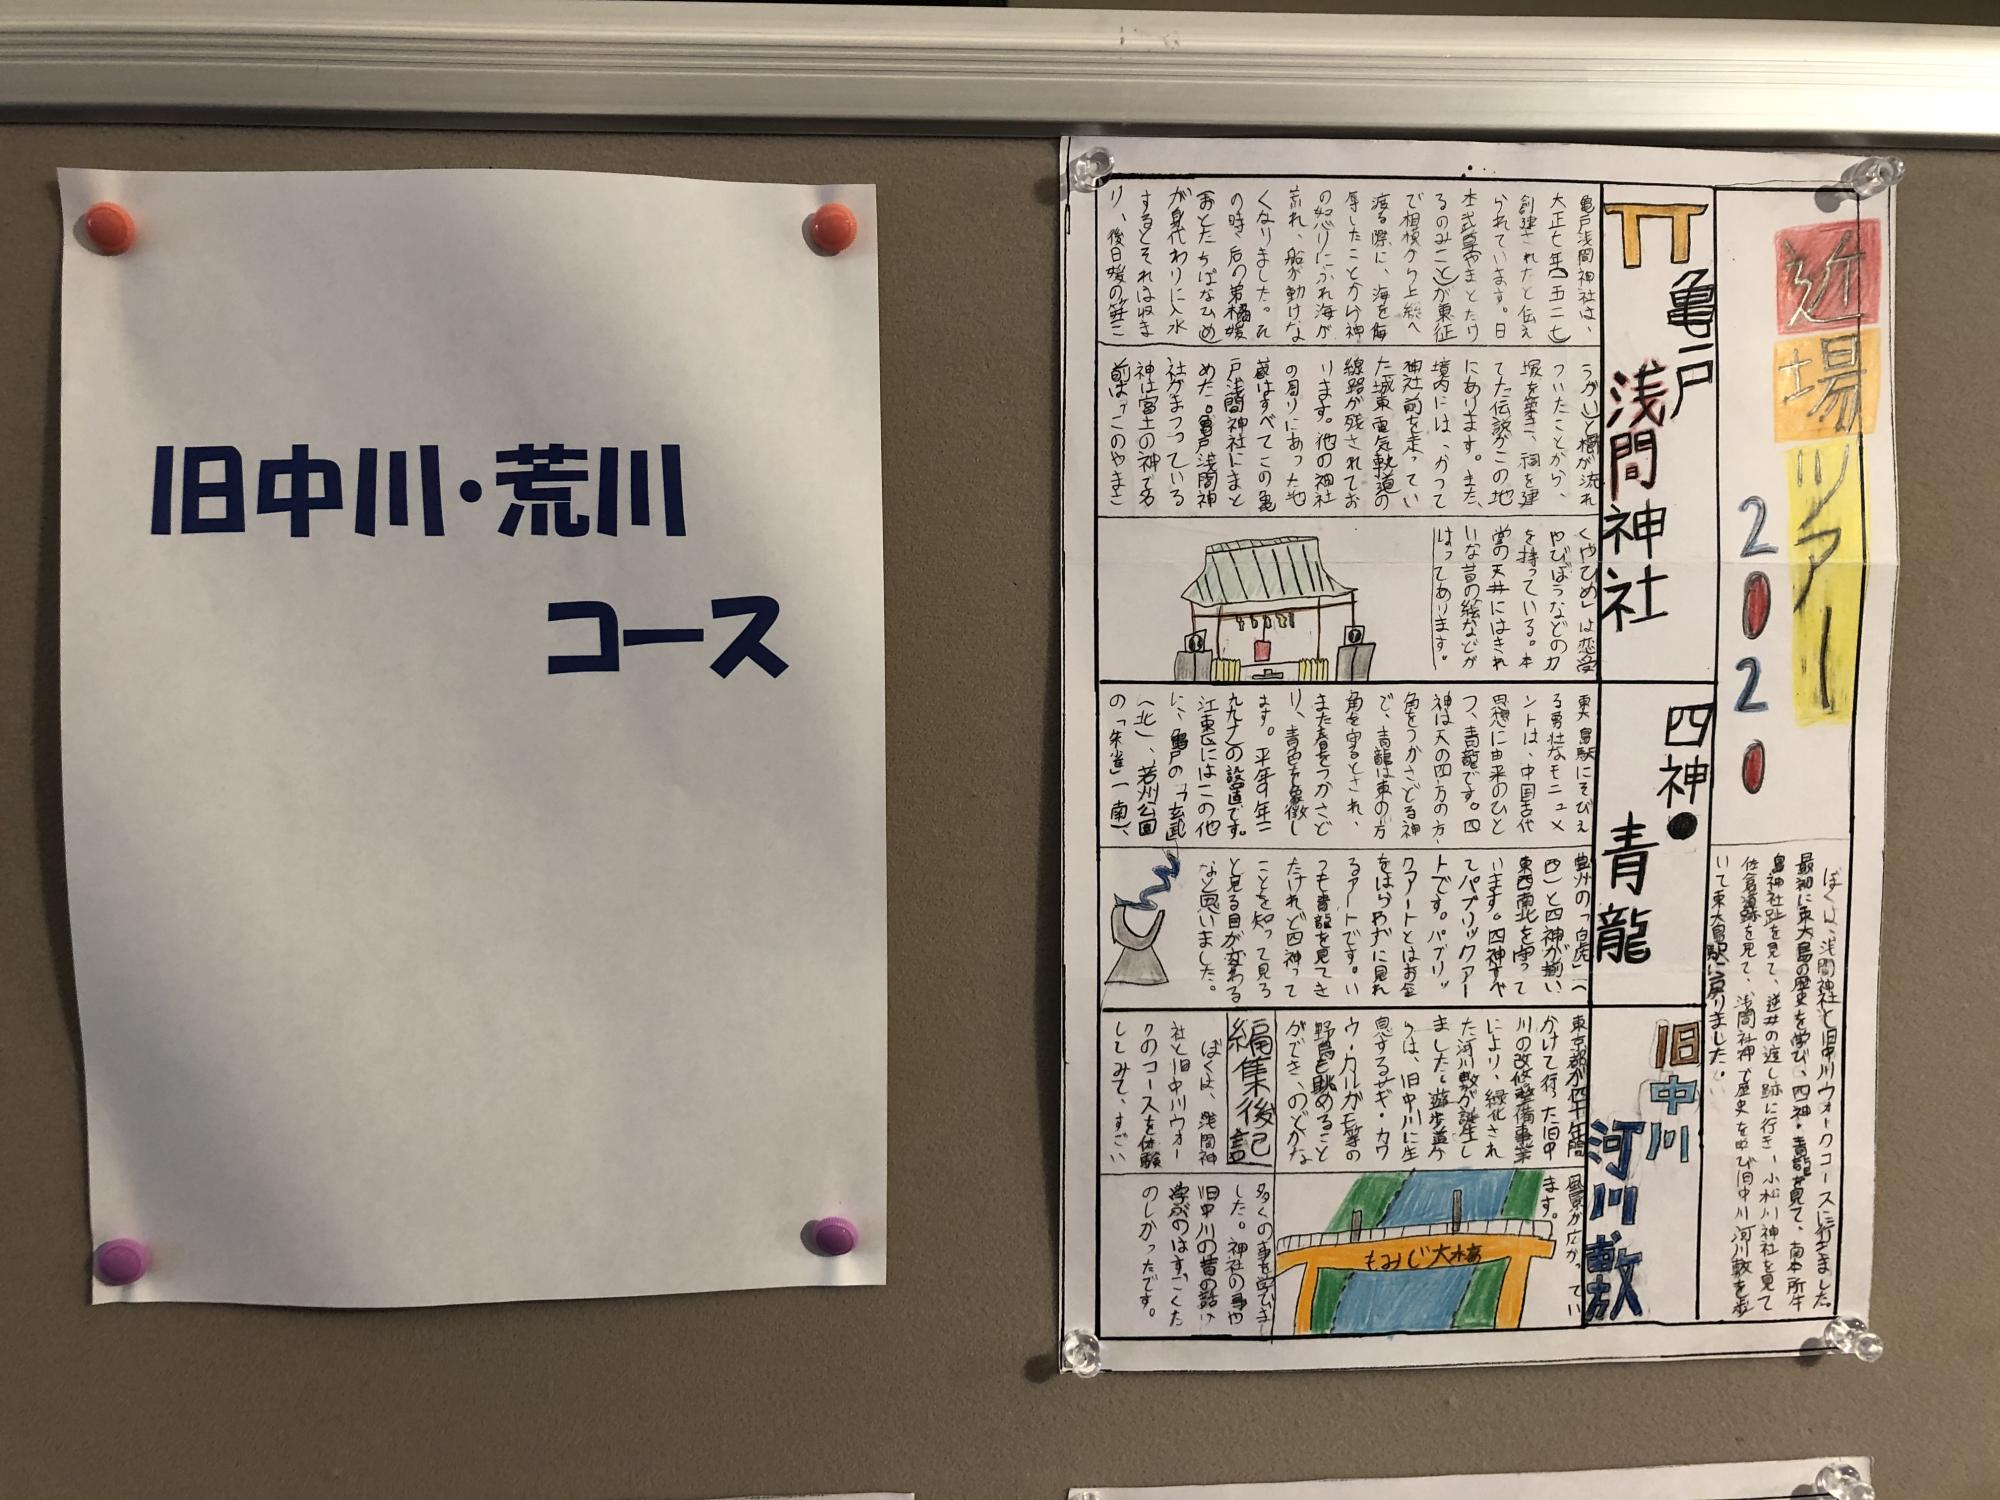 旧中川・荒川
コース
近場ツアー
2020
ぼくは、浅間神社と旧中川ウォークコースに行きました。
最初に東大島の歴史を学び、四神・青龍を見て、南本所牛
島神社趾を見て、逆井の渡し跡に行き、小松川神社を見て
佐倉道跡を見て、浅間神社で歴史を学び旧中川河川敷を歩
いて東大島駅に戻りました。
亀戸
浅間神社
亀戸浅間神社は、
大正七年(一五二七)
創建されたと伝え
られています。日
本武尊(やまとたけ
るのみこと)が東征
で相模から上総へ
渡る際に、海を侮
辱したことから神
の怒りにふれ海が
荒れ、船が動けな
くなりました。そ
の時、后の弟橘媛
(おとたちばなひめ)
が身代わりに入水
するとそれは収ま
り、後日媛の笄(こ
うがい)と櫛が流れ
ついたことから、
塚を築き、祠を建
てた伝説がこの地
にあります。また、
境内には、かって
神社前を走ってい
た城東電気軌道の
線路が残されてお
ります。他の神社
の周りにあった地
蔵はすべてこの亀
戸浅間神社にまと
めた。亀戸浅間神
社がまつっている
神は富士の神で名
前は「このやまさ
くやひめ」は恋愛
やびぼうなどの力
を持っている。本
堂の天井にはきれ
いな昔の絵などが
はってあります。
四神・
青龍
東大島駅にそびえ
る勇壮なモニュメ
ントは、中国古代
思想に由来のひと
つ、青龍です。四
神は天の四方の方
角をつかさどる神
で、青龍は東の方
角を守るとされ、
また春をつかさど
り、青色を象徴し
ます。平成9年(一
九九七)の設置です。
江東区にはこの他
に、亀戸の「玄武」
(北)、若洲公園
の「朱雀」(南)、
豊洲の「白虎」(
西)と四神が揃い
東西南北を守って
います。四神すべ
てパブリックアー
トです。パブリッ
クアートとはお金
をはらわずに見れ
るアートです。い
つも青龍を見てき
たけれど四神って
ことを知って見ろ
と見る目が変わる
なと思いました。
旧中川
河川敷
東京都が四十年間
かけて行った旧中
川の改修整備事業
により、緑化され
た河川敷が誕生し
ました。遊歩道か
らは、旧中川に生
息するサギ・カワ
ウ・カルガモ等の
野鳥を眺めること
ができ、のどかな
風景が広がってい
ます。
もみじ大橋
編集後記
ぼくは、浅間神
社と旧中川ウォー
クのコースを体験
してみて、すごい
多くの事を学びま
した。神社の事や
旧中川の昔の話が
学べのはすごくた
のしかったです。